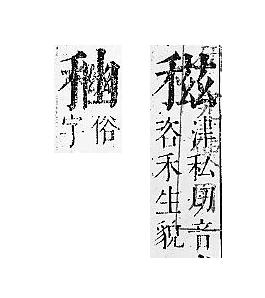 稵
津私切音
咨禾生貌
俗
字